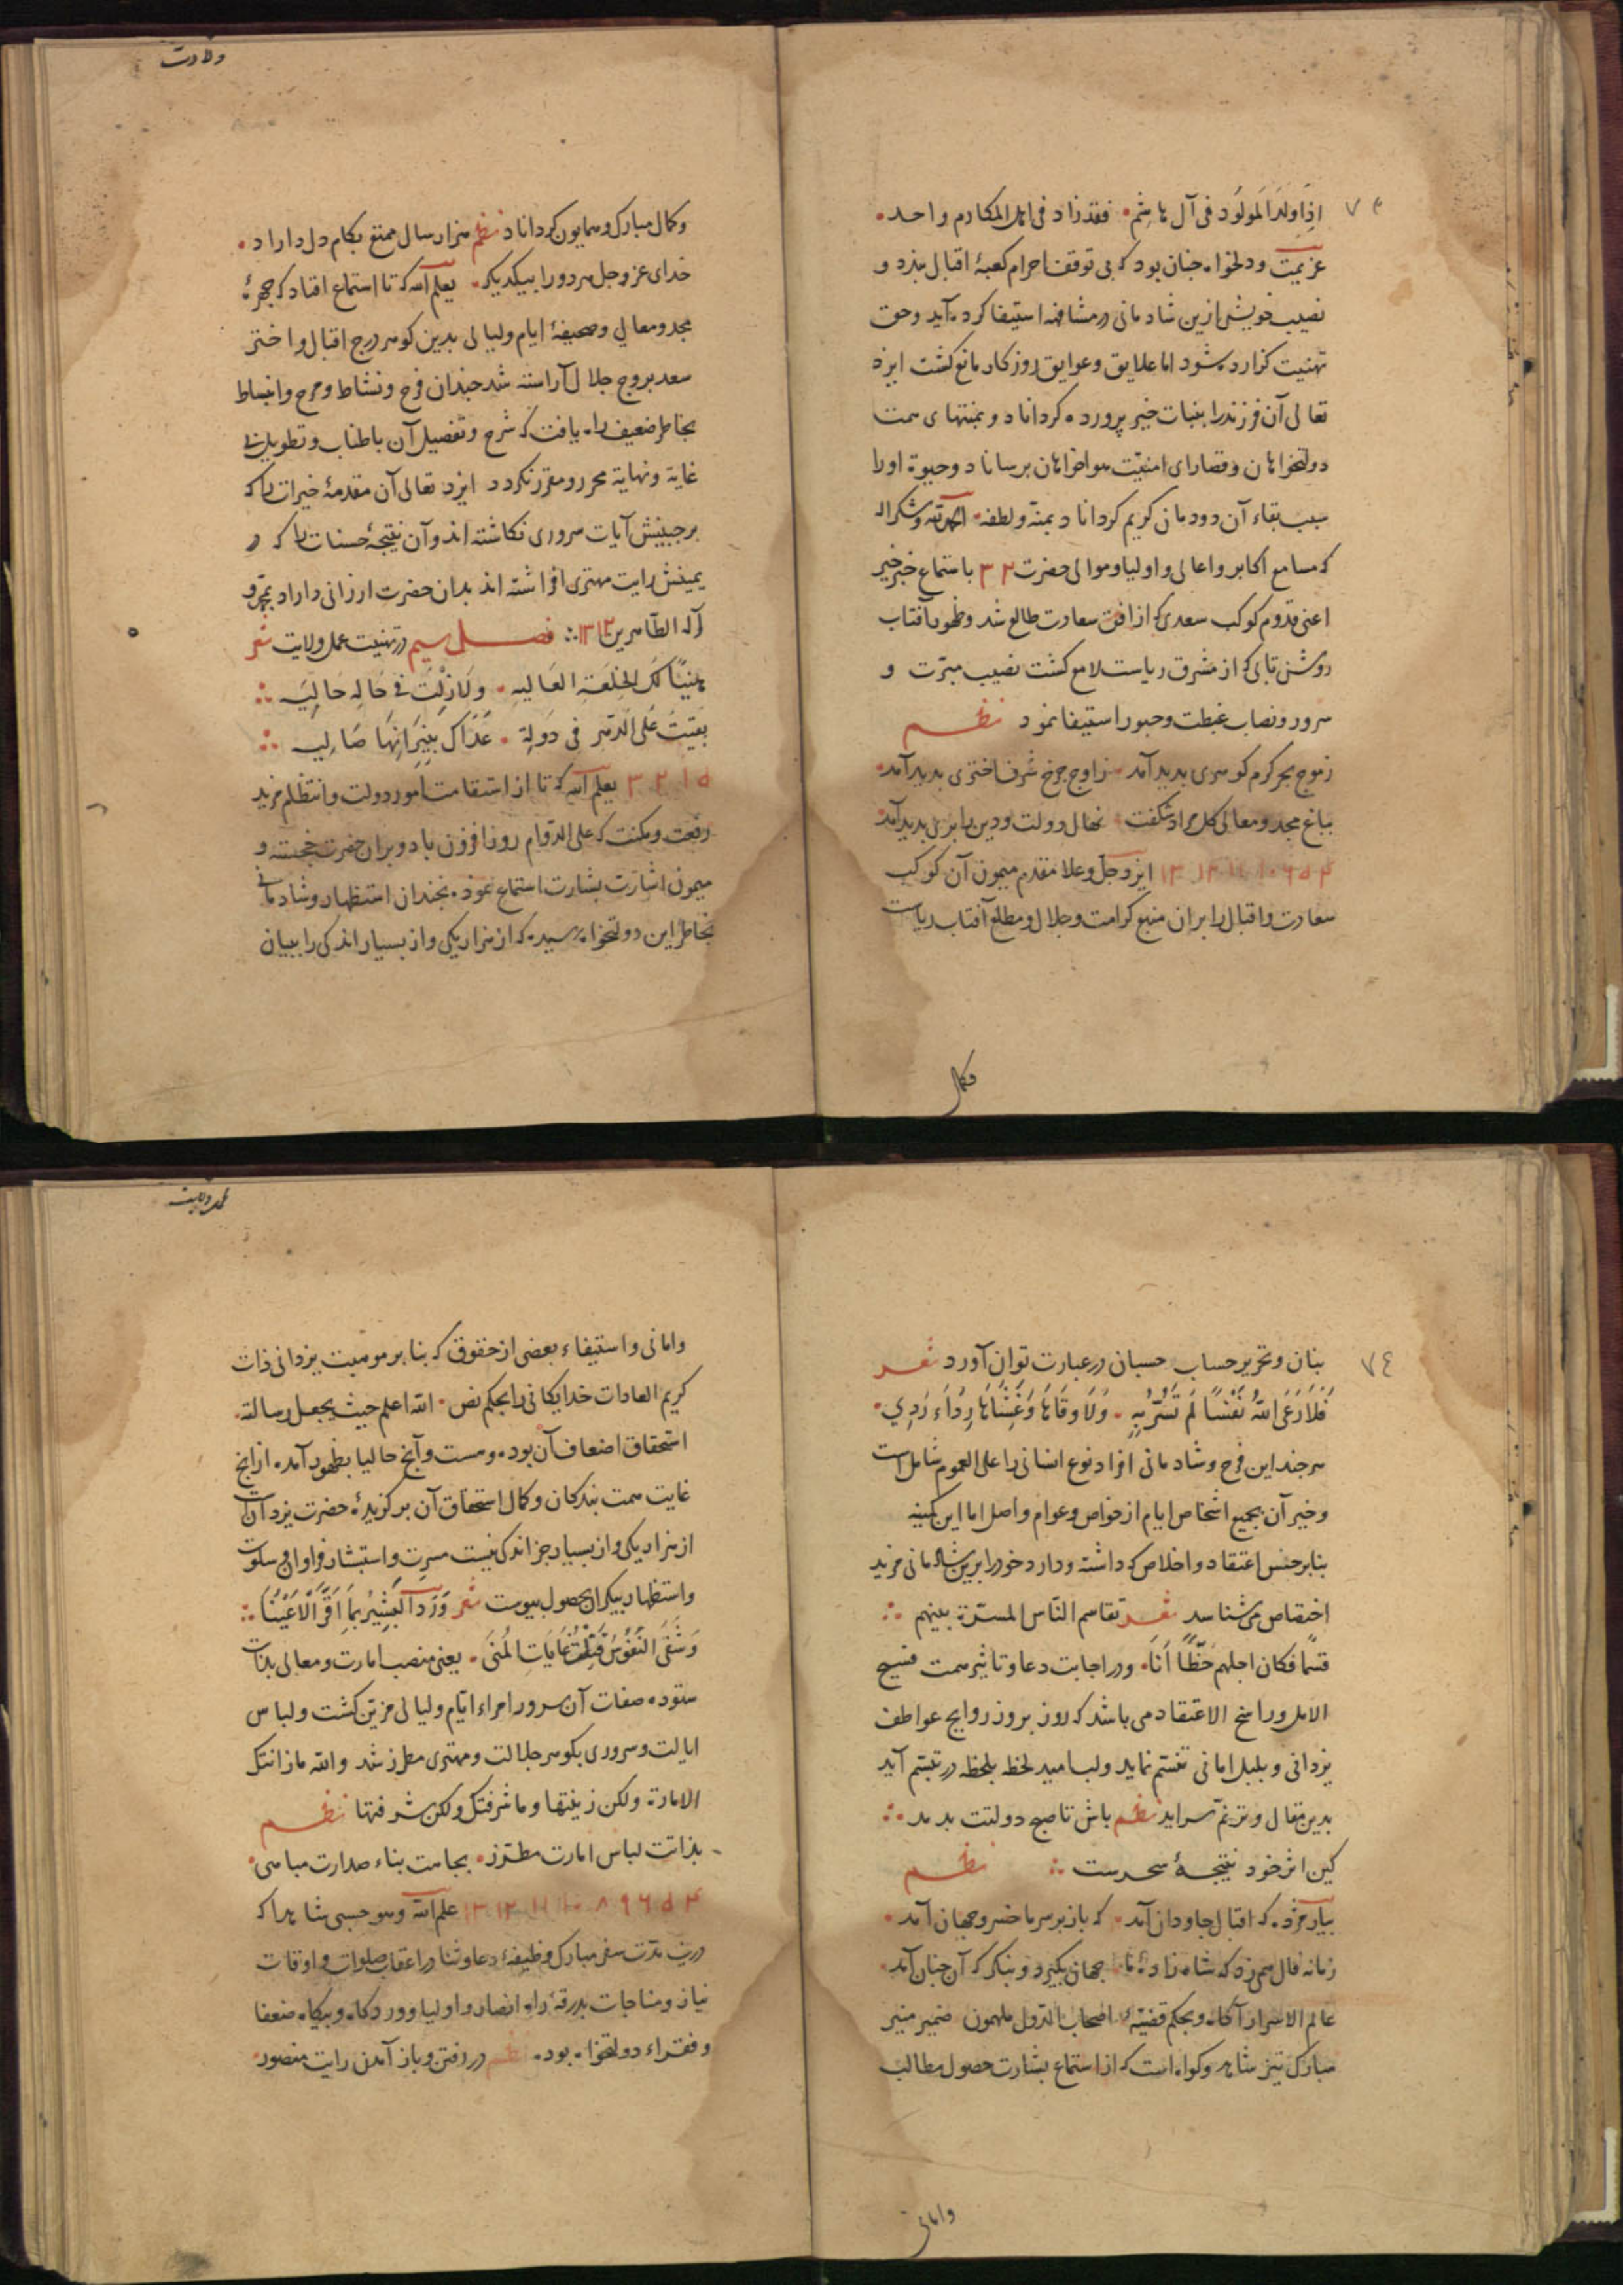 ولادت
۷۳
اِذَا وُلِدَ المَولُود فی آل هاشم فقد زاد فی اهل المکارم واحد
عزیمت و دلخواه چنان بود که بی توقف احرام کعبهٔ اقبال بندد و
نصیب خویش ازین شادمانی در مشافهه استیفا کرده آید و حق
تهنیت گزارده شود اما علایق و عوایق روزکار مانع کشت ایزد
تعالی آن فرزند را بنبات خیر پرورده کرداناد و بمنتهای همت
دولتخواهان و قصارای امنیّت هواخواهان برساناد و حیوة او را
سبب بقاء آن دودمان کریم کرداناد بمنّه ولطفه الحمدلله وشکرا له
که مسامع اکابر و اعالی و اولیا و موالی حضرت ۳ ۲ باستماع خبر خیر
اعنی قدوم کوکب سعدی که از افق سعادت طالع شد و ظهور آفتاب
روشن تابی که از مشرق ریاست لامع کشت نصیب مبرّت و
سرور و نصاب غبطت و حبور استیفا نمود نظم
ز موج بحر کرم کوهری بدید آمد ز اوج چرخ شرف اختری بدید آمد
بباغ مجد و معالی کل مراد شکفت نهال دولت و دین را بری بدید آمد
۴ ۵ ۶ ۱۰ ۱۱ ۱۲ ۱۳ ایزد جل وعلا مقدم میمون آن کوکب
سعادت و اقبال را بران منبع کرامت و جلال و مطلع آفتاب ریاست
وکمال
وکمال مبارک و همایون کرداناد نظم هزار سال ممتع بکام دل داراد
خدای عز وجل هر دو را بیکدیکر یعلم الله که تا استماع افتاد که حجرهٔ
مجد و معالی و صحیفهٔ ایام ولیالی بدین کوهر درج اقبال و اختر
سعد بروج جلال آراسته شد چندان فرح و نشاط و مرح و انبساط
بخاطر ضعیف راه یافت که شرح و تفصیل آن باطناب و تطویل بی
غایة و نهایة محرر و مقرر نکردد ایزد تعالی آن مقدمهٔ خیرات را که
بر جبینش آیات سروری نکاشته اند و آن نتیجهٔ حسنات را که در
یمینش رایت مهتری افراشته اند بدان حضرت ارزانی داراد بمحمد و
آله الطّاهرین ۱۲ ۱۳ فصل سیم در تهنیت عمل ولایت شعر
هَنِیًّا لَکَ الخِلعَةِ العَالیه وَلَا زِلْتَ فی حَالِه حَالِیَه
بَقِیتَ عَلی الدّهر فی دَولة عَدَاکَ بِنِیرَانِهَا صَالِیه
۵ ۱ ۲ ۳ یعلم الله که تا از استقامت امور دولت و انتظام مزید
رفعت و مکنت که علی الدّوام روز افزون باد و بران حضرت خجسته و
میمون اشارت بشارت استماع نموده بچندان استظهار و شادمانی
بخاطر این دولتخواه رسید که از هزار یکی و از بسیار اندکی را ببیان
عمل ولایت
۷۴
بنان و تحریر حساب حسبان در عبارت توان آورد شعر
فَلَا رَعَی اللهُ نَفْسًا لَم تُسَرُّ بِهِ وَلَا وَقَاهَا وَغَشَّاهَا رِدَاءَ رَدِی
هر چند این فرح و شادمانی افراد نوع انسانی را علی العموم شامل است
و خیر آن بجمیع اشخاص ایام از خواص و عوام واصل اما این کمینه
بنا بر حسن اعتقاد و اخلاص که داشته و دارد خود را برین شادمانی مزید
اختصاص می شناسد شعر تقاسم النّاس المسرّة بینهم
قسمًا فکان اجلهم حَظًّا اَنَا و در اجابت دعا و تاثیر همت فسیح
الامل و راسخ الاعتقاد می باشد که روز بروز روایح عواطف
یزدانی و بلبل امانی تنسّم نماید ولب امید لحظه بلحظه در تبسّم آید
بدین مقال و ترنّم سراید نظم باش تا صبح دولتت بدمد
کین اثر خود نتیجهٔ سحرست نظم
بیار مژده که اقبال جاودان آمد که باز بر سر ما خسرو جهان آمد
زمانه فال همی زد که شاه زادهٔ ما جهان بکیرد و بنکر که آن چنان آمد
عالم الاسرار آکاه و بحکم قضیّهٔ اصحاب الدّول ملهمون ضمیر منیر
مبارک نیز شاهد و کواه است که از استماع بشارت حصول مطالب
وامانی
وامانی و استیفاء بعضی از حقوق که بنا بر موهبت یزدانی ذات
کریم العادات خدایکانی را بحکم نص الله اعلم حیث یجعل رسالته
استحقاق اضعاف آن بوده و هست و آنچ حالیا بظهور آمده از آنچ
غایت همت بندکان و کمال استحقاق آن برکزیدهٔ حضرت یزدانست
از هزار یکی و از بسیار جز اندکی نیست مسرت و استبشار فراوان و سلوت
و استظهار بیکران بحصول پیوست شعر وَرَدَ البَشِیْرُ بِمَا اَقَرَّ الاَعْیُنَا
وَشَفَی النُّفُوسَ فَنِلْنَ غَایَاتِ المُنَی یعنی منصب امارت و معالی بذات
ستوده صفات آن سرور امراء ایّام و لیالی مزیّن کشت و لباس
ایالت و سروری بکوهر جلالت و مهتری مطرز شد والله ما زانتک
الامارة ولکن زینتها وما شرفتک ولکن شرفتها نظم
بذاتت لباس امارت مطرّز بجاهت بناء صدارت مباهی
۴ ۵ ۶ ۹ ۸ ۱۰ ۱۱ ۱۲ ۱۳ علم الله وهو حسبی شاهدا که
درین مدّت سفر مبارک وظیفهٔ دعا و ثنا در اعقاب صلوات و اوقات
نیاز و مناجات بدرقهٔ راه انصار و اولیا و ورد کاه و بیکاه ضعفا
و فقراء دولتخواه بود نظم در رفتن و باز آمدن رایت منصور